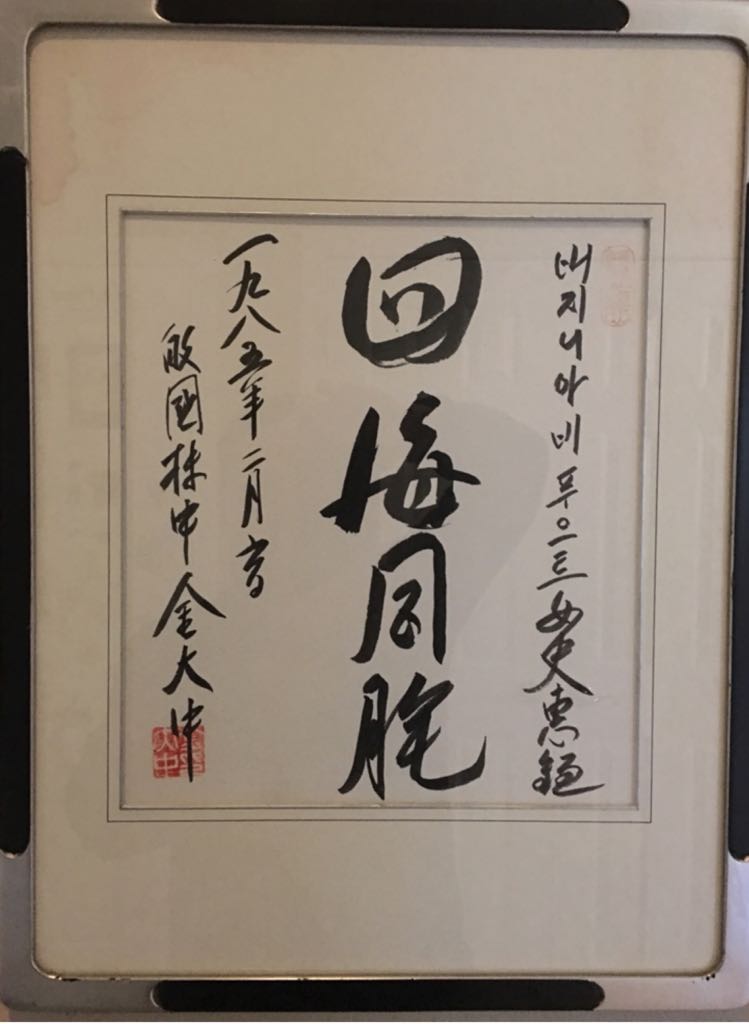 버지니아 비 푸으트 女史 惠鑑
四海同胞
一九八五年 二月
國 金大中